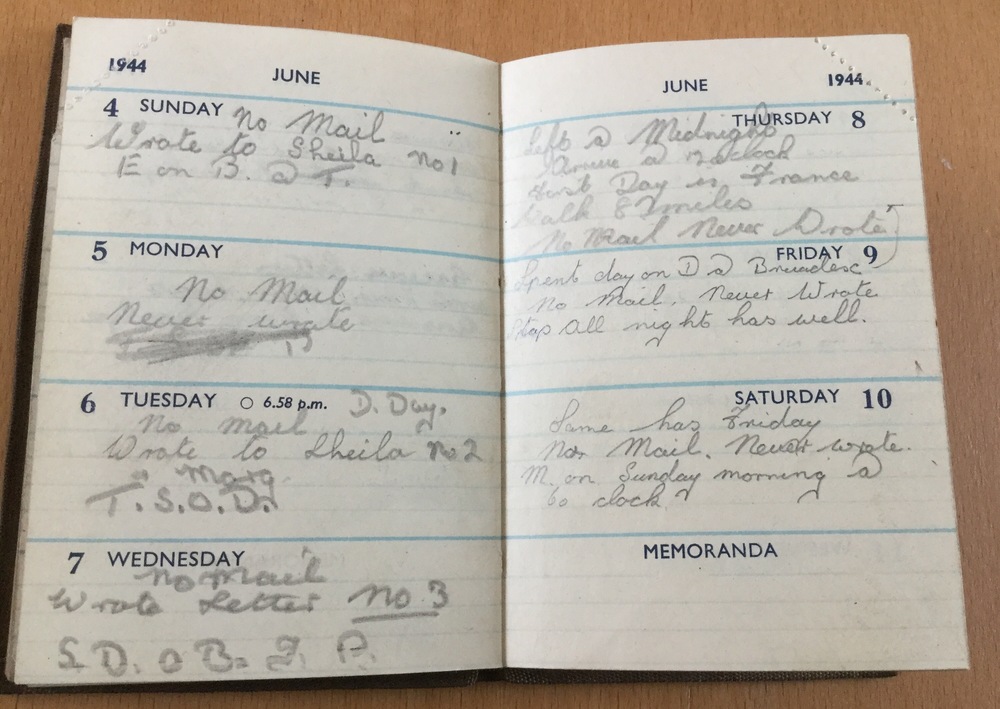 1944 JUNE
4 SUNDAY No Mail
Wrote to Sheila No 1
E on B. @ T.
5 MONDAY
No Mail
Never wrote
6 TUESDAY 6.58 p.m. D. Day.
No mail
Wrote to Sheila No 2
" Marg.
T. S. O. D.
7 WEDNESDAY
No Mail
Wrote Letter No 3
S. D. O B. J. P.
JUNE 1944
THURSDAY 8
Left @ Midnight
Arrive @ o clock
First Day in France
Walk 8 miles
No Mail Never Wrote
FRIDAY 9
Spent day on D @
No Mail. Never Wrote
Stop All night has well.
SATURDAY 10
Same has Friday
No Mail. Never wrote.
M. on Sunday morning @
6 o clock
MEMORANDA